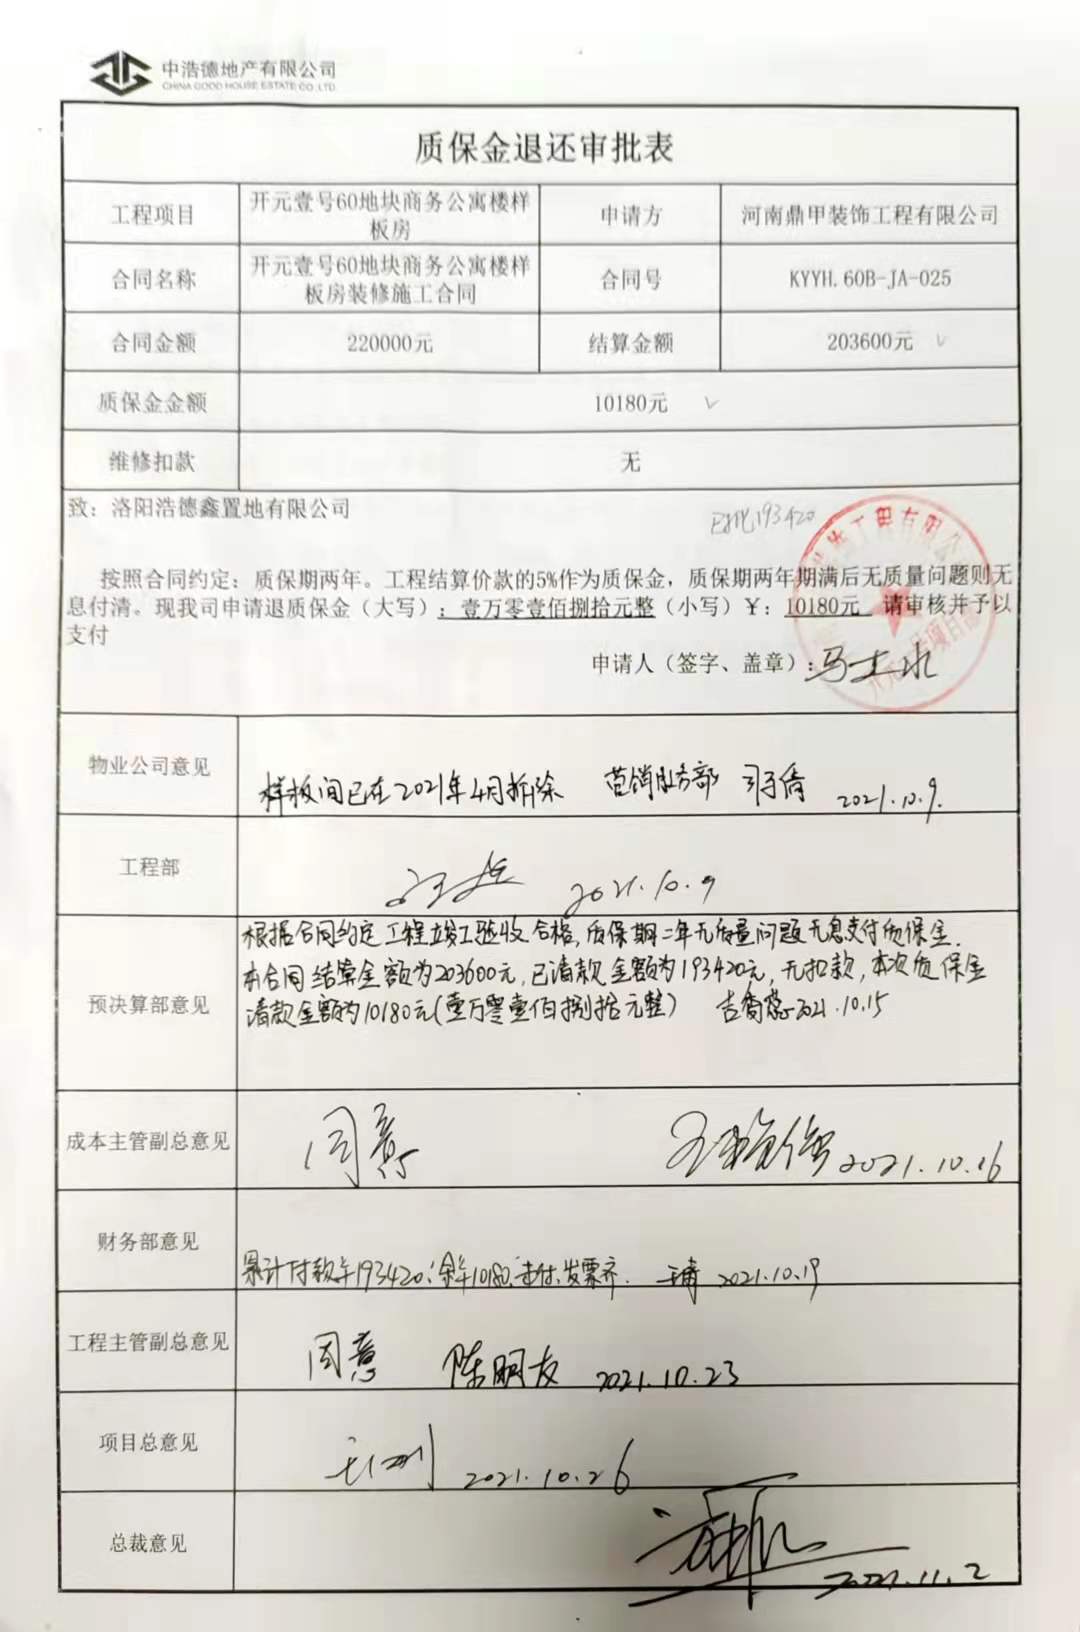 中浩德地产有限公司
CHINA GOOD HOUSE ESTATE CO.,LTD
质保金退还审批表
工程项目 开元壹号60地块商务公寓楼样板房 申请方 河南鼎甲装饰工程有限公司
合同名称 开元壹号60地块商务公寓楼样板房装修施工合同 合同号 KYYH.60B-JA-025
合同金额 220000元 结算金额 203600元
质保金金额 10180元
维修扣款 无
致：洛阳浩德鑫置地有限公司
193420
按照合同约定：质保期两年。工程结算价款的5%作为质保金，质保期两年期满后无质量问题则无
息付清。现我司申请退质保金（大写）：壹万零壹佰捌拾元整（小写）￥：10180元 请审核并予以
支付
申请人（签字、盖章）：马士水
物业公司意见 样板间已在2021年4月拆除 营销服务部 2021.10.9.
工程部 2021.10.9
根据合同约定工程竣工验收合格，质保期二年无质量问题无息支付质保金.
本合同结算金额为203600元，已请款金额为193420元，无扣款，本次质保金
预决算部意见 请款金额为10180元(壹万零壹佰捌拾元整) 2021.10.15
成本主管副总意见 同意 2021.10.16
财务部意见 累计付款¥193420，余¥10180，未付，发票齐. 2021.10.19
工程主管副总意见 同意 陈朋友 2021.10.23
项目总意见 2021.10.26
总裁意见 2021.11.2